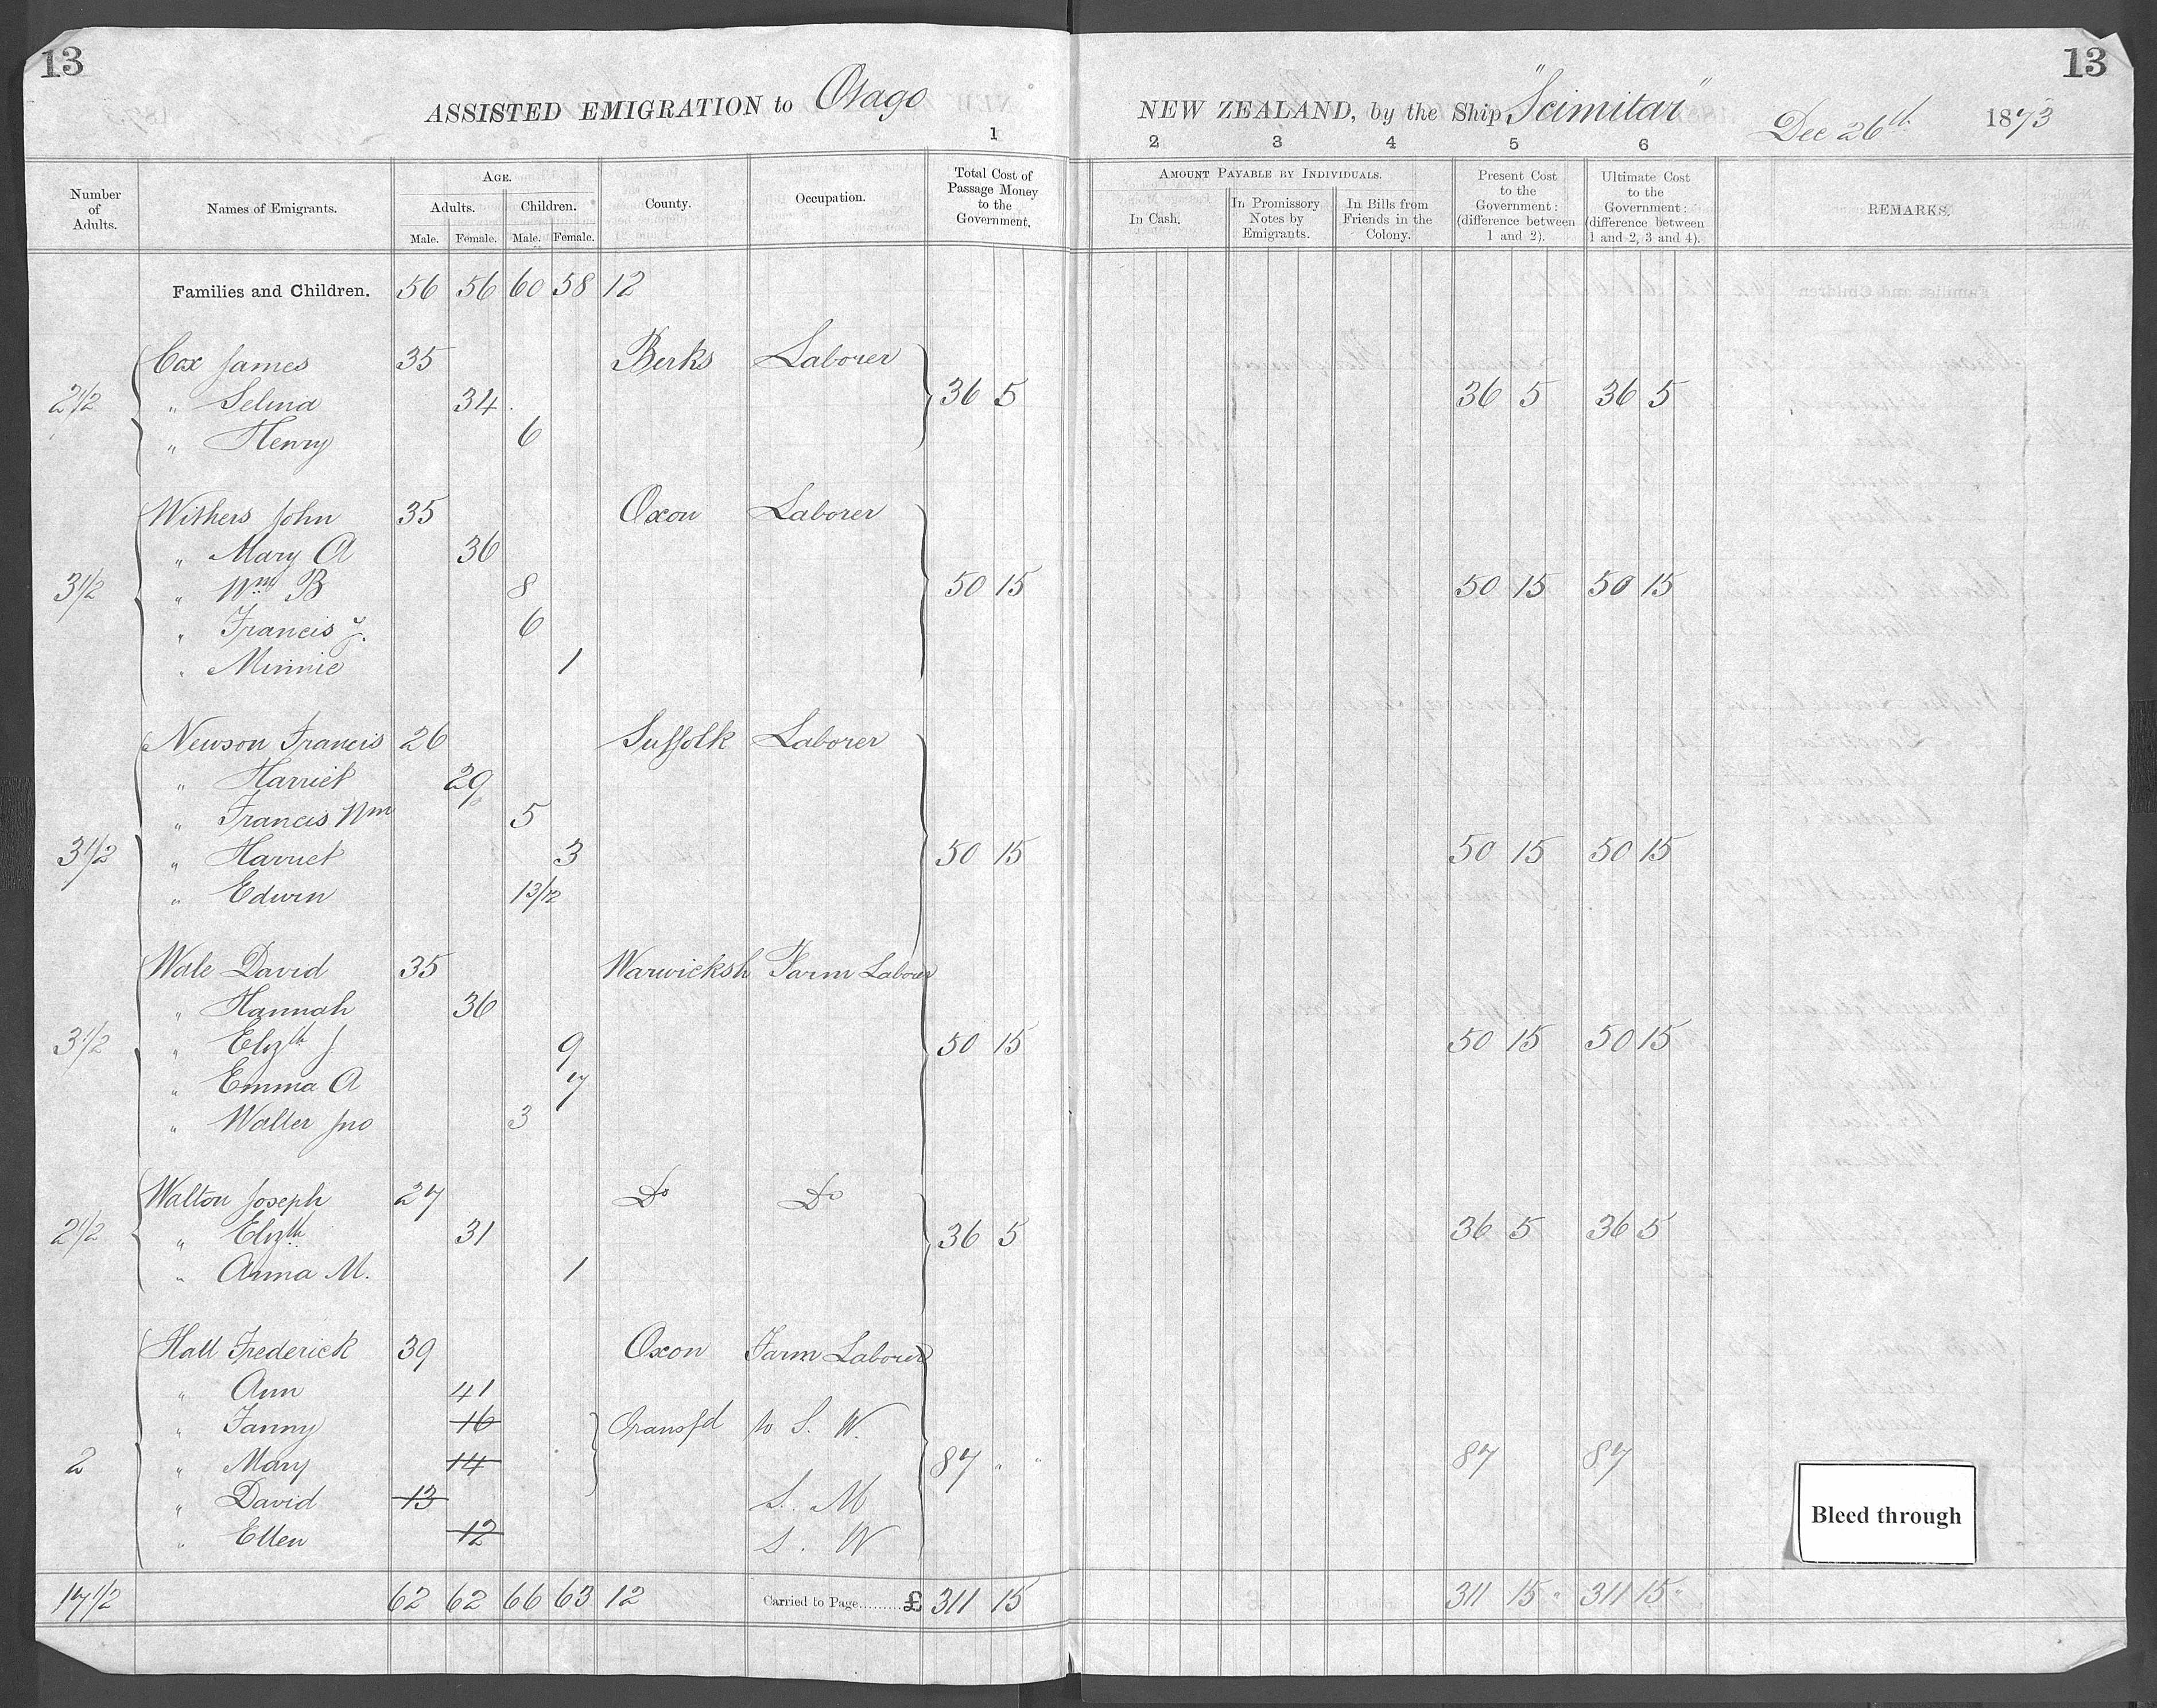 13
13
ASSISTED EMIGRATION to Otago NEW ZEALAND, by the Ship "Scimitar" Dec 26th 1873
1 2 3 4 5 6
Number of Adults.
Names of Emigrants.
AGE.
Adults. Children.
Male. Female. Male. Female.
County.
Occupation.
Total Cost of Passage Money to the Government.
AMOUNT PAYABLE BY INDIVIDUALS.
In Cash.
In Promissory Notes by Emigrants.
In Bills from Friends in the Colony.
Present Cost to the Government: (difference between 1 and 2).
Ultimate Cost to the Government: (difference between 1 and 2, 3 and 4).
REMARKS.
Families and Children. 56 56 60 58 12
Cox James 35 Berks Laborer
2 1/2 " Selina 34 36 5 36 5 36 5
" Henry 6
Withers John 35 Oxon Laborer
" Mary A 36
3 1/2 " Wm B 8 50 15 50 15 50 15
" Francis J. 6
" Minnie 1
Newson Francis 26 Suffolk Laborer
" Harriet 29
" Francis Wm 5
3 1/2 " Harriet 3 50 15 50 15 50 15
" Edwin 13/12
Wale David 35 Warwicksh Farm Laborer
" Hannah 36
3 1/2 " Elizth J 9 50 15 50 15 50 15
" Emma A 7
" Walter Jno 3
Walton Joseph 27 Do Do
2 1/2 " Elizth 31 36 5 36 5 36 5
" Anna M. 1
Hall Frederick 39 Oxon Farm Laborer
" Ann 41
" Fanny 16 Transfd to S. W.
2 " Mary 14 87 " " 87 87
" David 13 S. M
" Ellen 12 S. W
Bleed through
17 1/2 62 62 66 63 12 Carried to Page.........£ 311 15 311 15 " 311 15 "